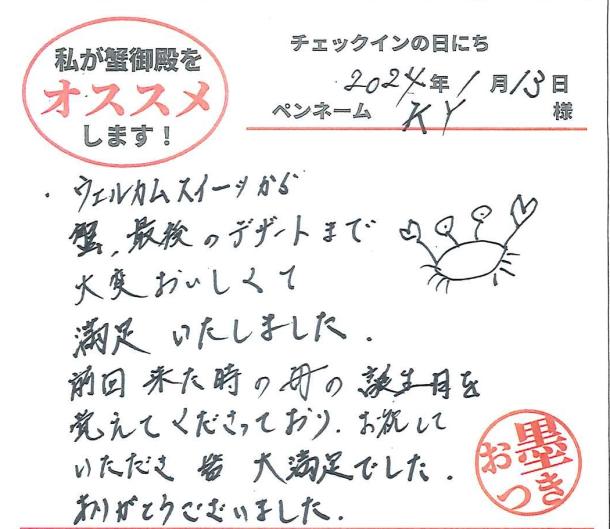 私が蟹御殿を
オススメ
します！
チェックインの日にち
2024年1月13日
ペンネーム KY 様
・ウェルカムスイーツから
蟹、最後のデザートまで
大変おいしくて
満足いたしました.
前回来た時の母の誕生月を
覚えてくださっており、お祝して
いただき皆大満足でした.
ありがとうございました.
お墨つき